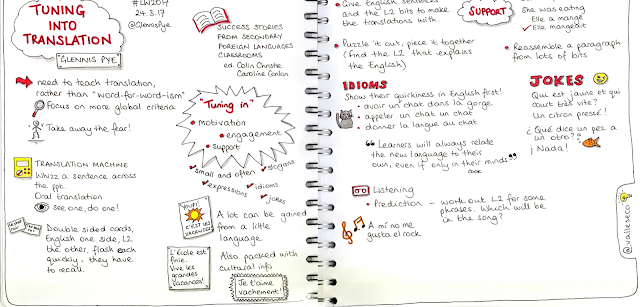 TUNING
INTO
TRANSLATION
GLENNIS PYE
#LW2017
24.3.17
@GlennisPye
SUCCESS STORIES
FROM SECONDARY
FOREIGN LANGUAGES
CLASSROOMS
ed. Colin Christie
Caroline Conlon
need to teach translation,
rather than "word-for-word-ism"
Focus on more global criteria
Take away the fear!
"Tuning in"
• motivation
• engagement
• support
✓ small and often
✓ slogans
✓ expressions
✓ idioms
✓ jokes
TRANSLATION MACHINE
Whizz a sentence across
the ppt.
Oral translation
see one, do one!
Double sided cards,
English one side, L2
the other, flash each
quickly, they have
to recall.
YOUPI!
C'EST LES
VACANCES!
A lot can be gained
from a little
language
L'école est
finie.
Vive les
grandes
vacances!
Also packed with
cultural info
Je t'aime
vachement!
• Give English sentences
and the L2 bits to make
the translations with.
• Puzzle it out, piece it together
(Find the L2 that explains
the English)
SUPPORT
She was eating
Elle a mangé
✓ Elle mangeait
• Reassemble a paragraph
from lots of bits
IDIOMS
Show their quirkiness in English first!
• avoir un chat dans la gorge
• appeler un chat un chat
• donner la langue au chat
"Learners will always relate
the new language to their
own, even if only in their minds"
COOK
Listening
• Prediction – work out L2 for some
phrases. Which will be
in the song?
A mí no me
gusta el rock
JOKES
Qui est jaune et qui
court très vite?
Un citron pressé!
¿Qué dice un pez a
un otro?
¡Nada!
@valleseco